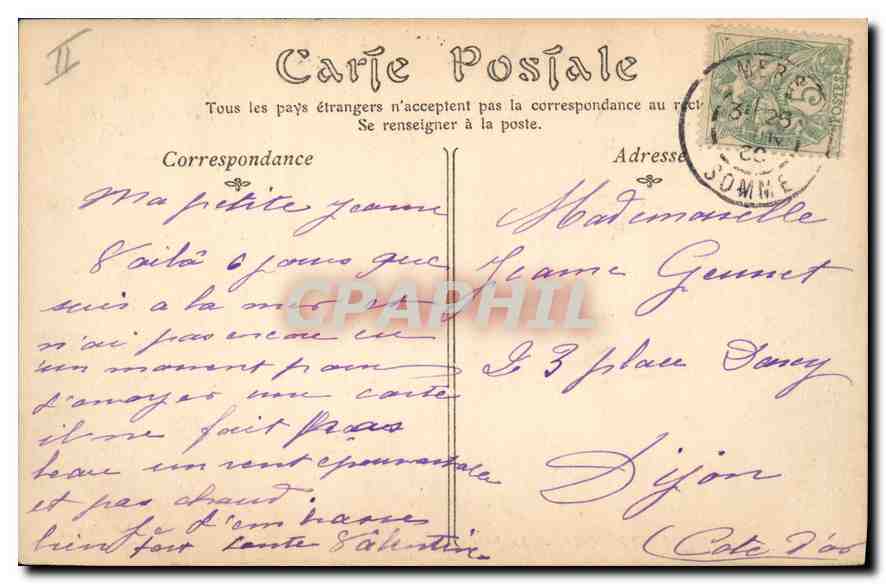 II
Carte Postale
Tous les pays étrangers n'acceptent pas la correspondance au rect
Se renseigner à la poste.
Correspondance
Ma petite Jeanne
Voilà 6 jours que
suis a la mer et
n'ai pas encore eu
un moment pour
t'envoyer une carte
il ne fait pas
beau un vent épouvantable
et pas chaud
Je t'embrasse
bien fort tante Valentine
Adresse
Mademoiselle
Jeanne Geunet
23 place Darcy
Dijon
(Cote d'or
MERS
25
SOMME
5
POSTES
CPAPHIL